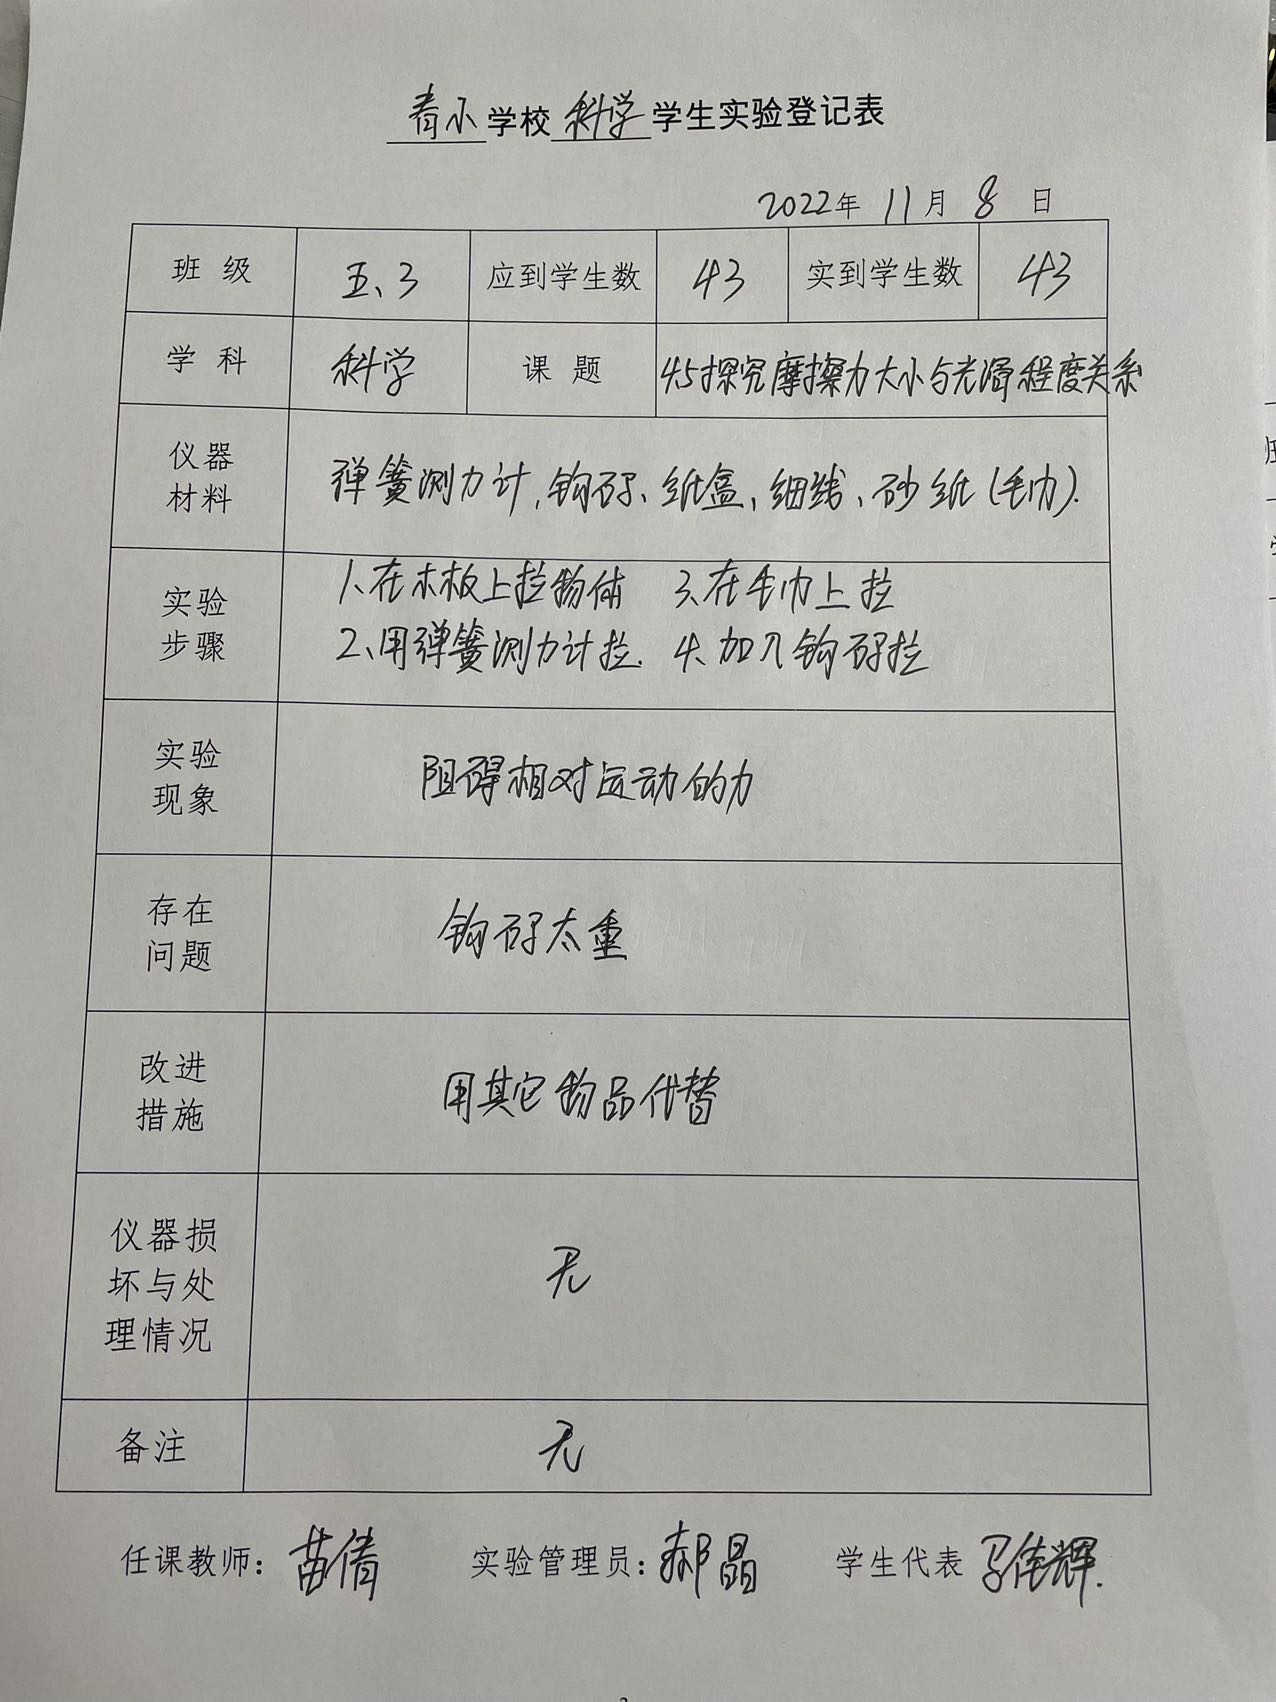 青小学校科学学生实验登记表
2022年 11月 8 日
班 级 五、3 应到学生数 43 实到学生数 43
学 科 科学 课 题 45探究摩擦力大小与光滑程度关系
仪器
材料
弹簧测力计,钩码、纸盒、细线、砂纸(毛巾).
实验
步骤
1.在木板上拉物体 3、在毛巾上拉
2、用弹簧测力计拉. 4、加入钩码拉
实验
现象
阻碍相对运动的力
存在
问题
钩码太重
改进
措施
用其它物品代替
仪器损
坏与处
理情况
无
备注 无
任课教师：苗倩 实验管理员：郝晶 学生代表 马佳辉.